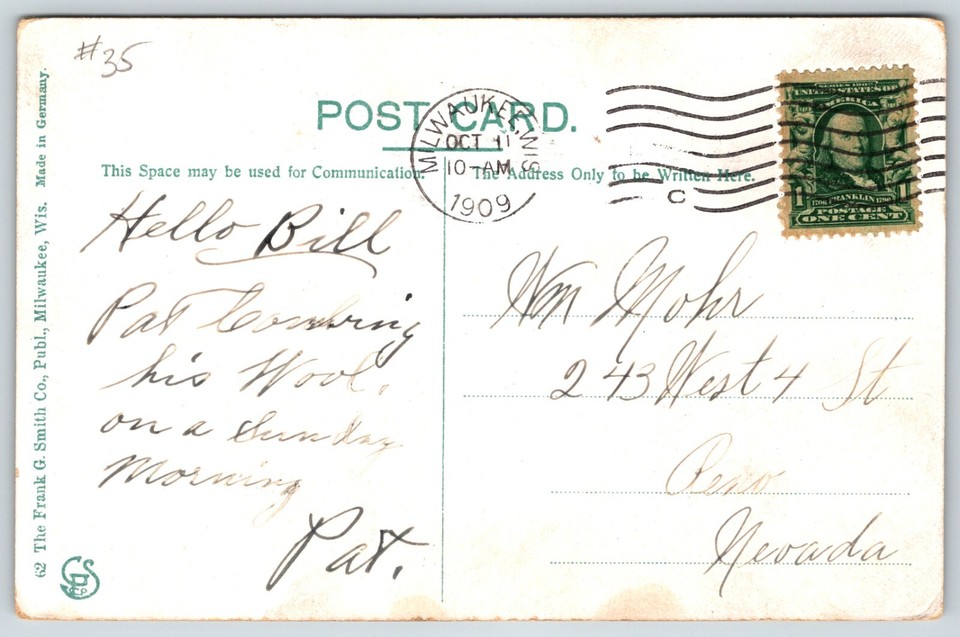 #35
POST CARD.
MILWAUKEE, WIS.
OCT 11
10-AM
1909
C
SERIES 1902
UNITED STATES OF
AMERICA
1 1
1706 FRANKLIN 1790
POSTAGE
ONE CENT
This Space may be used for Communication.
The Address Only to be Written Here.
Hello Bill
Pat Combing
his Wool,
on a Sunday
Morning
Pat.
Wm Mohr
243 West 4 St
Reno
Nevada
62 The Frank G. Smith Co., Publ., Milwaukee, Wis. Made in Germany.